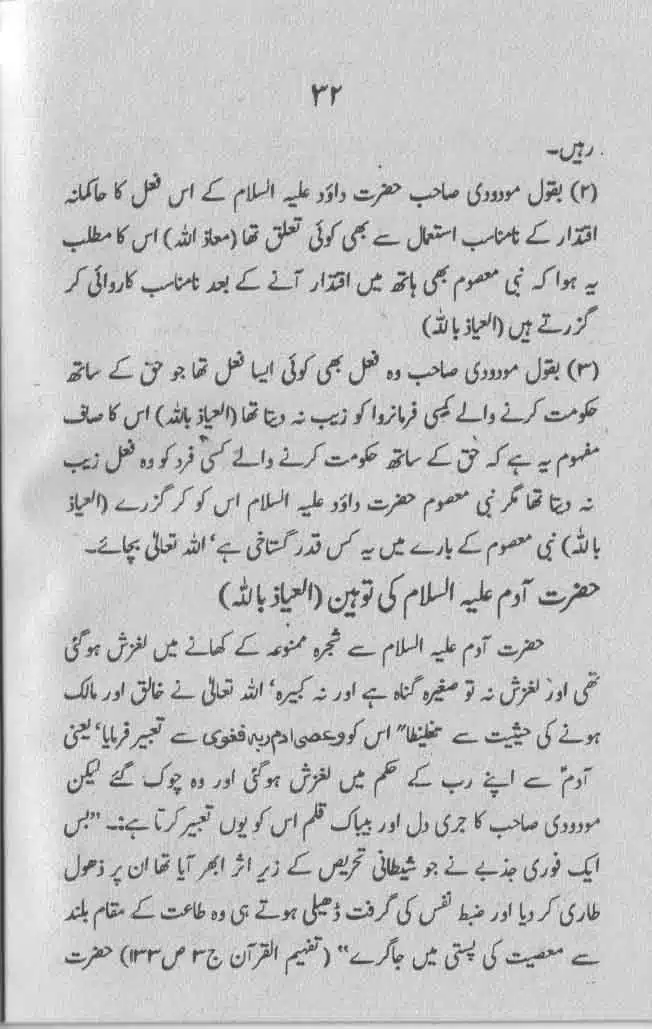 ۳۲
رہیں۔
(۲) بقول مودودی صاحب حضرت داؤد علیہ السلام کے اس فعل کا حاکمانہ
اقتدار کے نامناسب استعمال سے بھی کوئی تعلق تھا (معاذ اللہ) اس کا مطلب
یہ ہوا کہ نبی معصوم بھی ہاتھ میں اقتدار آنے کے بعد نامناسب کاروائی کر
گزرتے ہیں (العیاذ باللہ)
(۳) بقول مودودی صاحب وہ فعل بھی کوئی ایسا فعل تھا جو حق کے ساتھ
حکومت کرنے والے کسی فرمانروا کو زیب نہ دیتا تھا (العیاذ باللہ) اس کا صاف
مفہوم یہ ہے کہ حق کے ساتھ حکومت کرنے والے کسی فرد کو وہ فعل زیب
نہ دیتا تھا مگر نبی معصوم حضرت داؤد علیہ السلام اس کو کر گزرے (العیاذ
باللہ) نبی معصوم کے بارے میں یہ کس قدر گستاخی ہے‘ اللہ تعالیٰ بچائے۔
حضرت آدم علیہ السلام کی توہین (العیاذ باللہ)
حضرت آدم علیہ السلام سے شجرہ ممنوعہ کے کھانے میں لغزش ہوگئی
تھی اور لغزش نہ تو صغیرہ گناہ ہے اور نہ کبیرہ‘ اللہ تعالیٰ نے خالق اور مالک
ہونے کی حیثیت سے تغلیظا" اس کو وعصی ادم ربہ فغوی سے تعبیر فرمایا‘ یعنی
آدمؑ سے اپنے رب کے حکم میں لغزش ہوگئی اور وہ چوک گئے لیکن
مودودی صاحب کا جری دل اور بیباک قلم اس کو یوں تعبیر کرتا ہے:۔ "بس
ایک فوری جذبے نے جو شیطانی تحریص کے زیر اثر ابھر آیا تھا ان پر ذھول
طاری کر دیا اور ضبط نفس کی گرفت ڈھیلی ہوتے ہی وہ طاعت کے مقام بلند
سے معصیت کی پستی میں جاگرے" (تفہیم القرآن ج۳ ص۱۳۳) حضرت